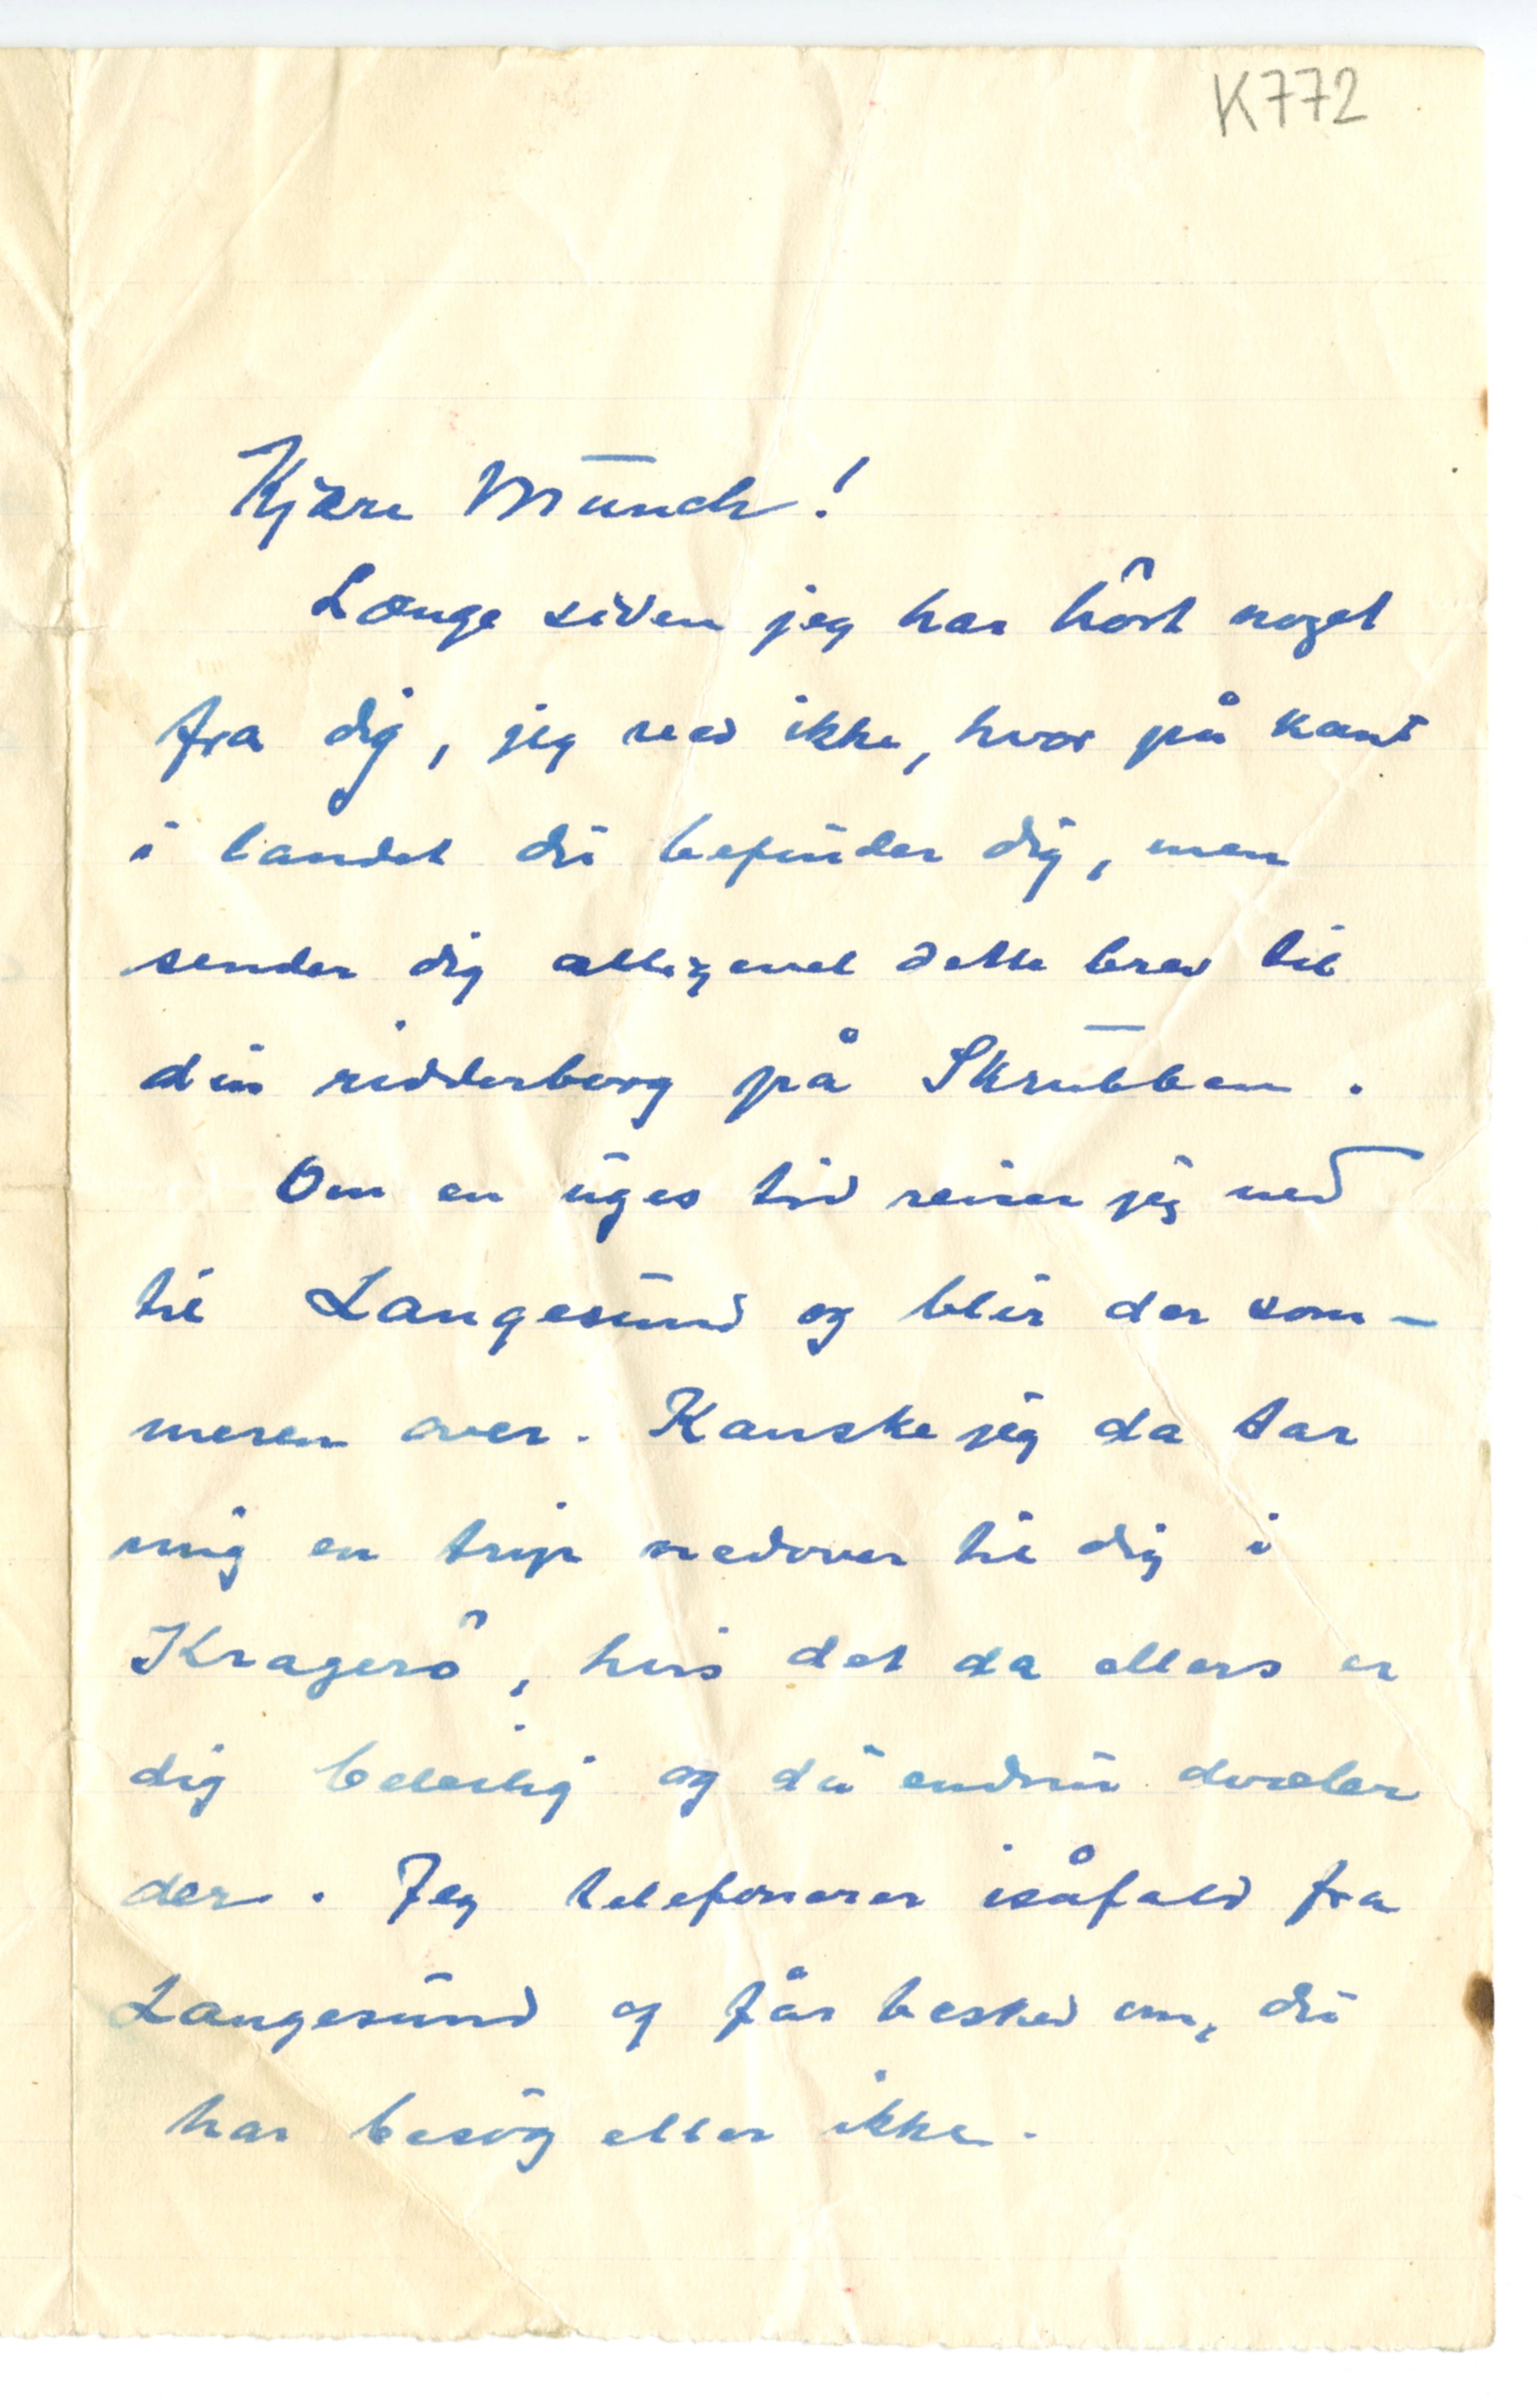 K772
Kjære Munch!
Længe siden jeg har hört noget
fra dig, jeg ved ikke, hvor på kant
i landet du befinder dig, men
sender dig alligevel dette brev til
din ridderborg på Skrubben.
Om en uges tid reiser jeg ned
til Langesund og blir der som-
meren over. Kanske jeg da tar
mig en trip nedover til dig i
Kragerö, hvis det da ellers er
dig beleilig og du endnu dvæler
der. Jeg telefonerer isåfald fra
Langesund og får besked om, du
har besög eller ikke.